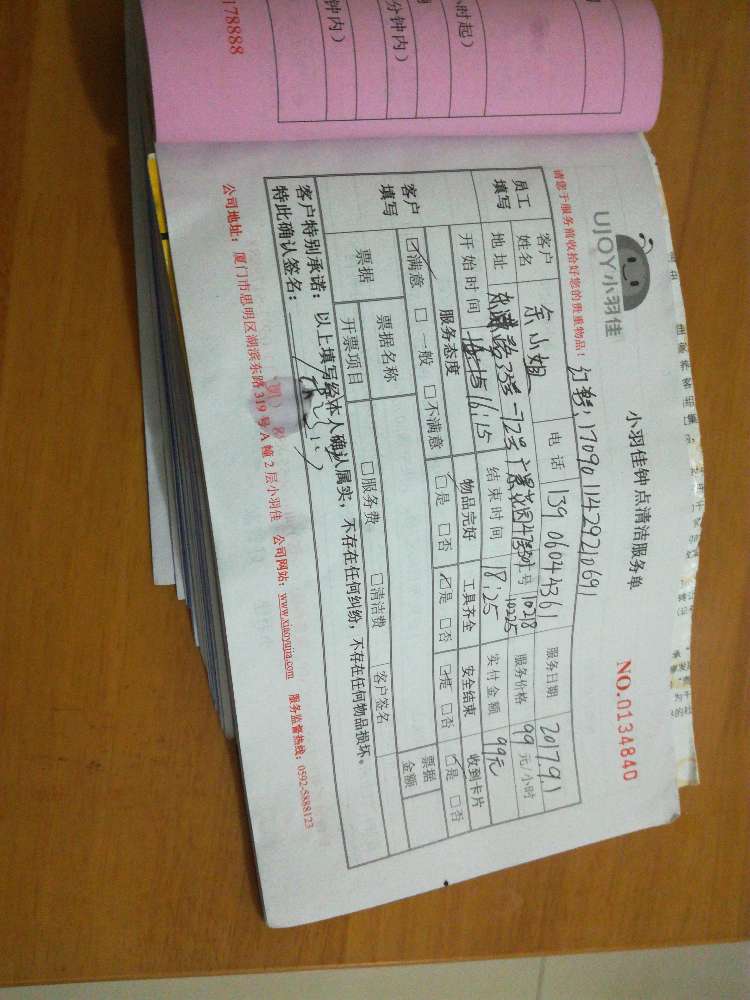 UJOY小羽佳
小羽佳钟点清洁服务单
NO.0134840
请您于服务前收拾好您的贵重物品!
订单:1709011429210691
员工填写
客户姓名 余小姐 电话 13906044361 服务日期 2017.9.1
地址 号 10218 10225 服务价格 99元/小时
开始时间 16:15 结束时间 18:25 实付金额 99元
客户填写
服务态度 物品完好 工具齐全 安全结束 收到卡片
☑满意 □一般 □不满意 ☑是 □否 ☑是 □否 ☑是 □否 ☑是 □否
票据 票据名称 客户签名 票据金额
开票项目 □服务费 □清洁费
客户特别承诺:以上填写经本人确认属实,不存在任何纠纷,不存在任何物品损坏。
特此确认签名:
公司地址:厦门市思明区湖滨东路319号A幢2层小羽佳 公司网站:www.xiaoyujia.com 服务监督热线:0592-5888123
时起)
分钟内)
钟内)
178888